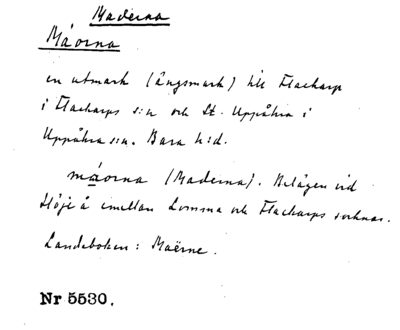 Maderna
Máorna
en utmark (ängsmark) till Flackarp
i Flackarps s:n och St. Uppåkra i
Uppåkra s:n. Bara h:d.
máorna (Maderna). Belägen vid
Höje å emellan Lomma och Flackarps socknar.
Landeboken: Maërne.
Nr 5530.